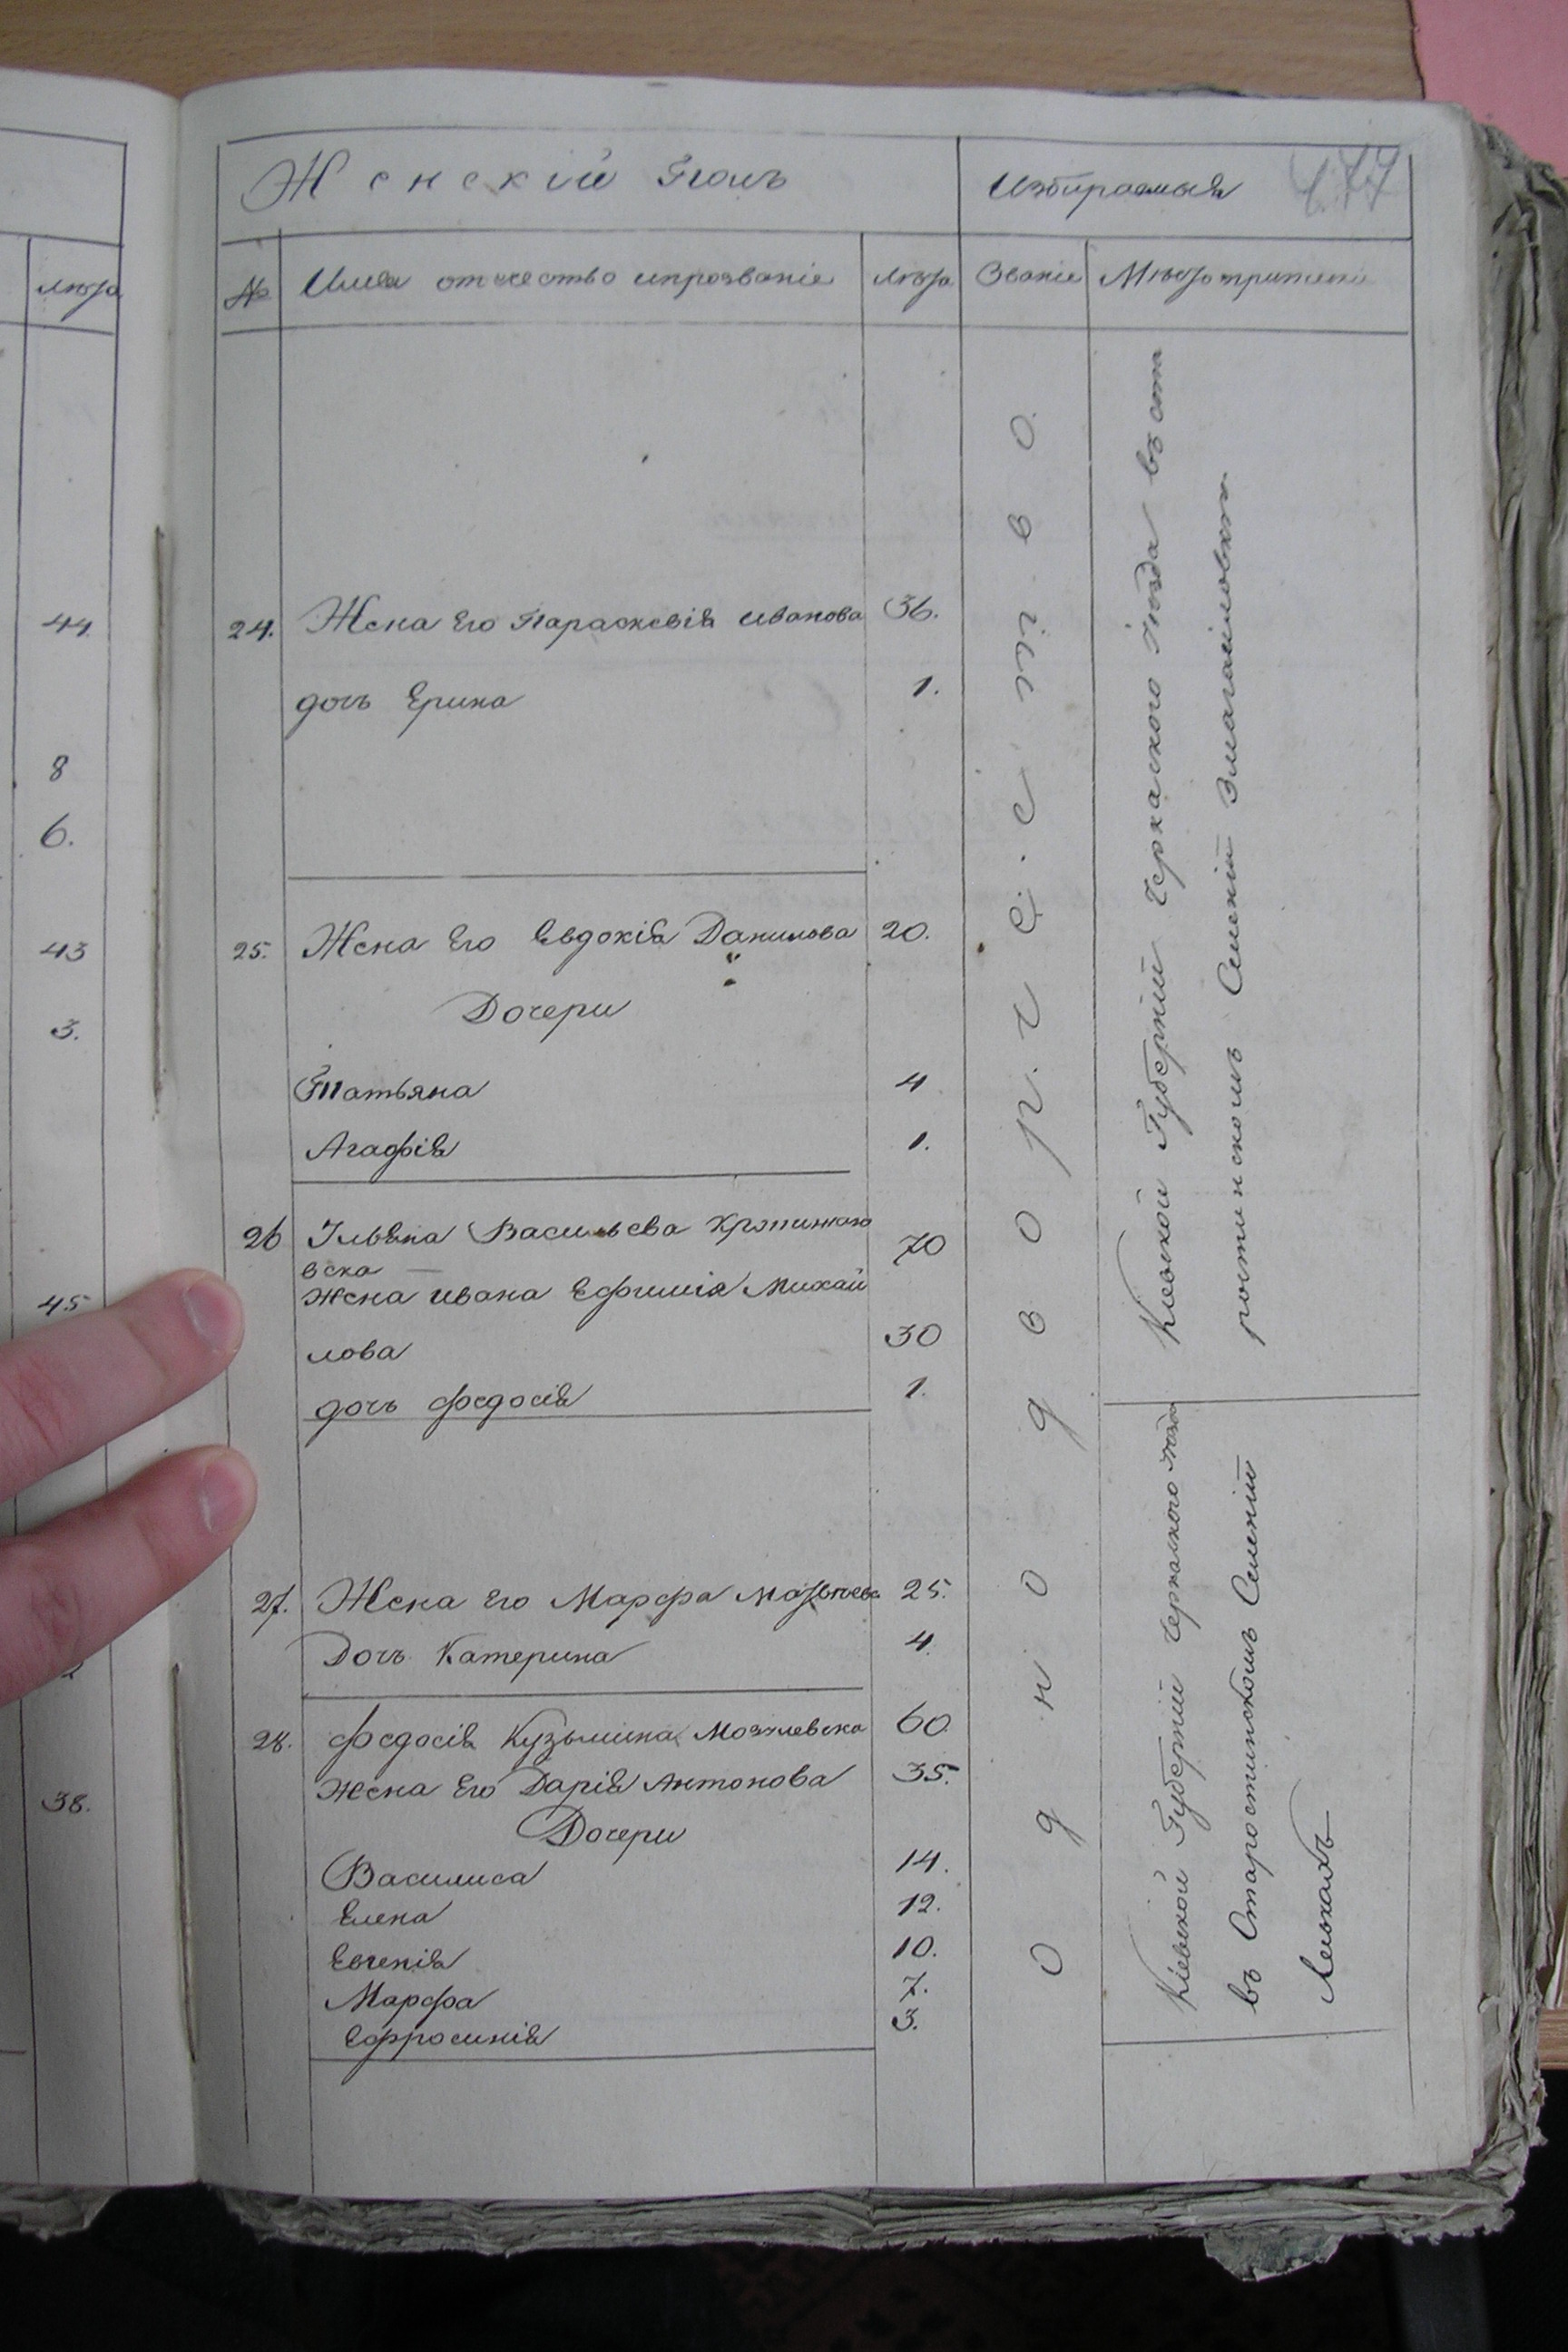 лѣта
44.
8
6.
43
3.
45
38.
Женскій Полъ
Избираемыя
477
№
Имя отчество ипрозваніе
Лѣта
Званіе
24.
Жена Его Параскевія Иванова
36.
дочь Ерина
1.
25.
Жена Его Евдокія Данилова
20.
Дочери
Татьяна
4
Агафія
1.
26
Васильева
вска
70
Жена Ивана Ефимія Михай
лова
30
дочь Федосія
1.
27.
Жена Его Марфа
25.
Дочь Катерина
4.
28.
Федосія Кузьмина
60.
Жена Его Дарія Антонова
35.
Дочери
Василиса
14.
Елена
12.
Евгенія
10.
Марфа
7.
Ефросинія
3.
Однодворчество.
Кіевской Губерніи Черкаского Уѣзда въ Ста
ростинскомъ Селеніи
Кіевской Губерніи Черкаского
въ Старостинскомъ Селеніи